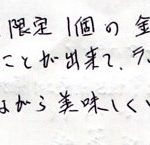 限定1個の金
ことが出来て、ラ
ながら美味しくい